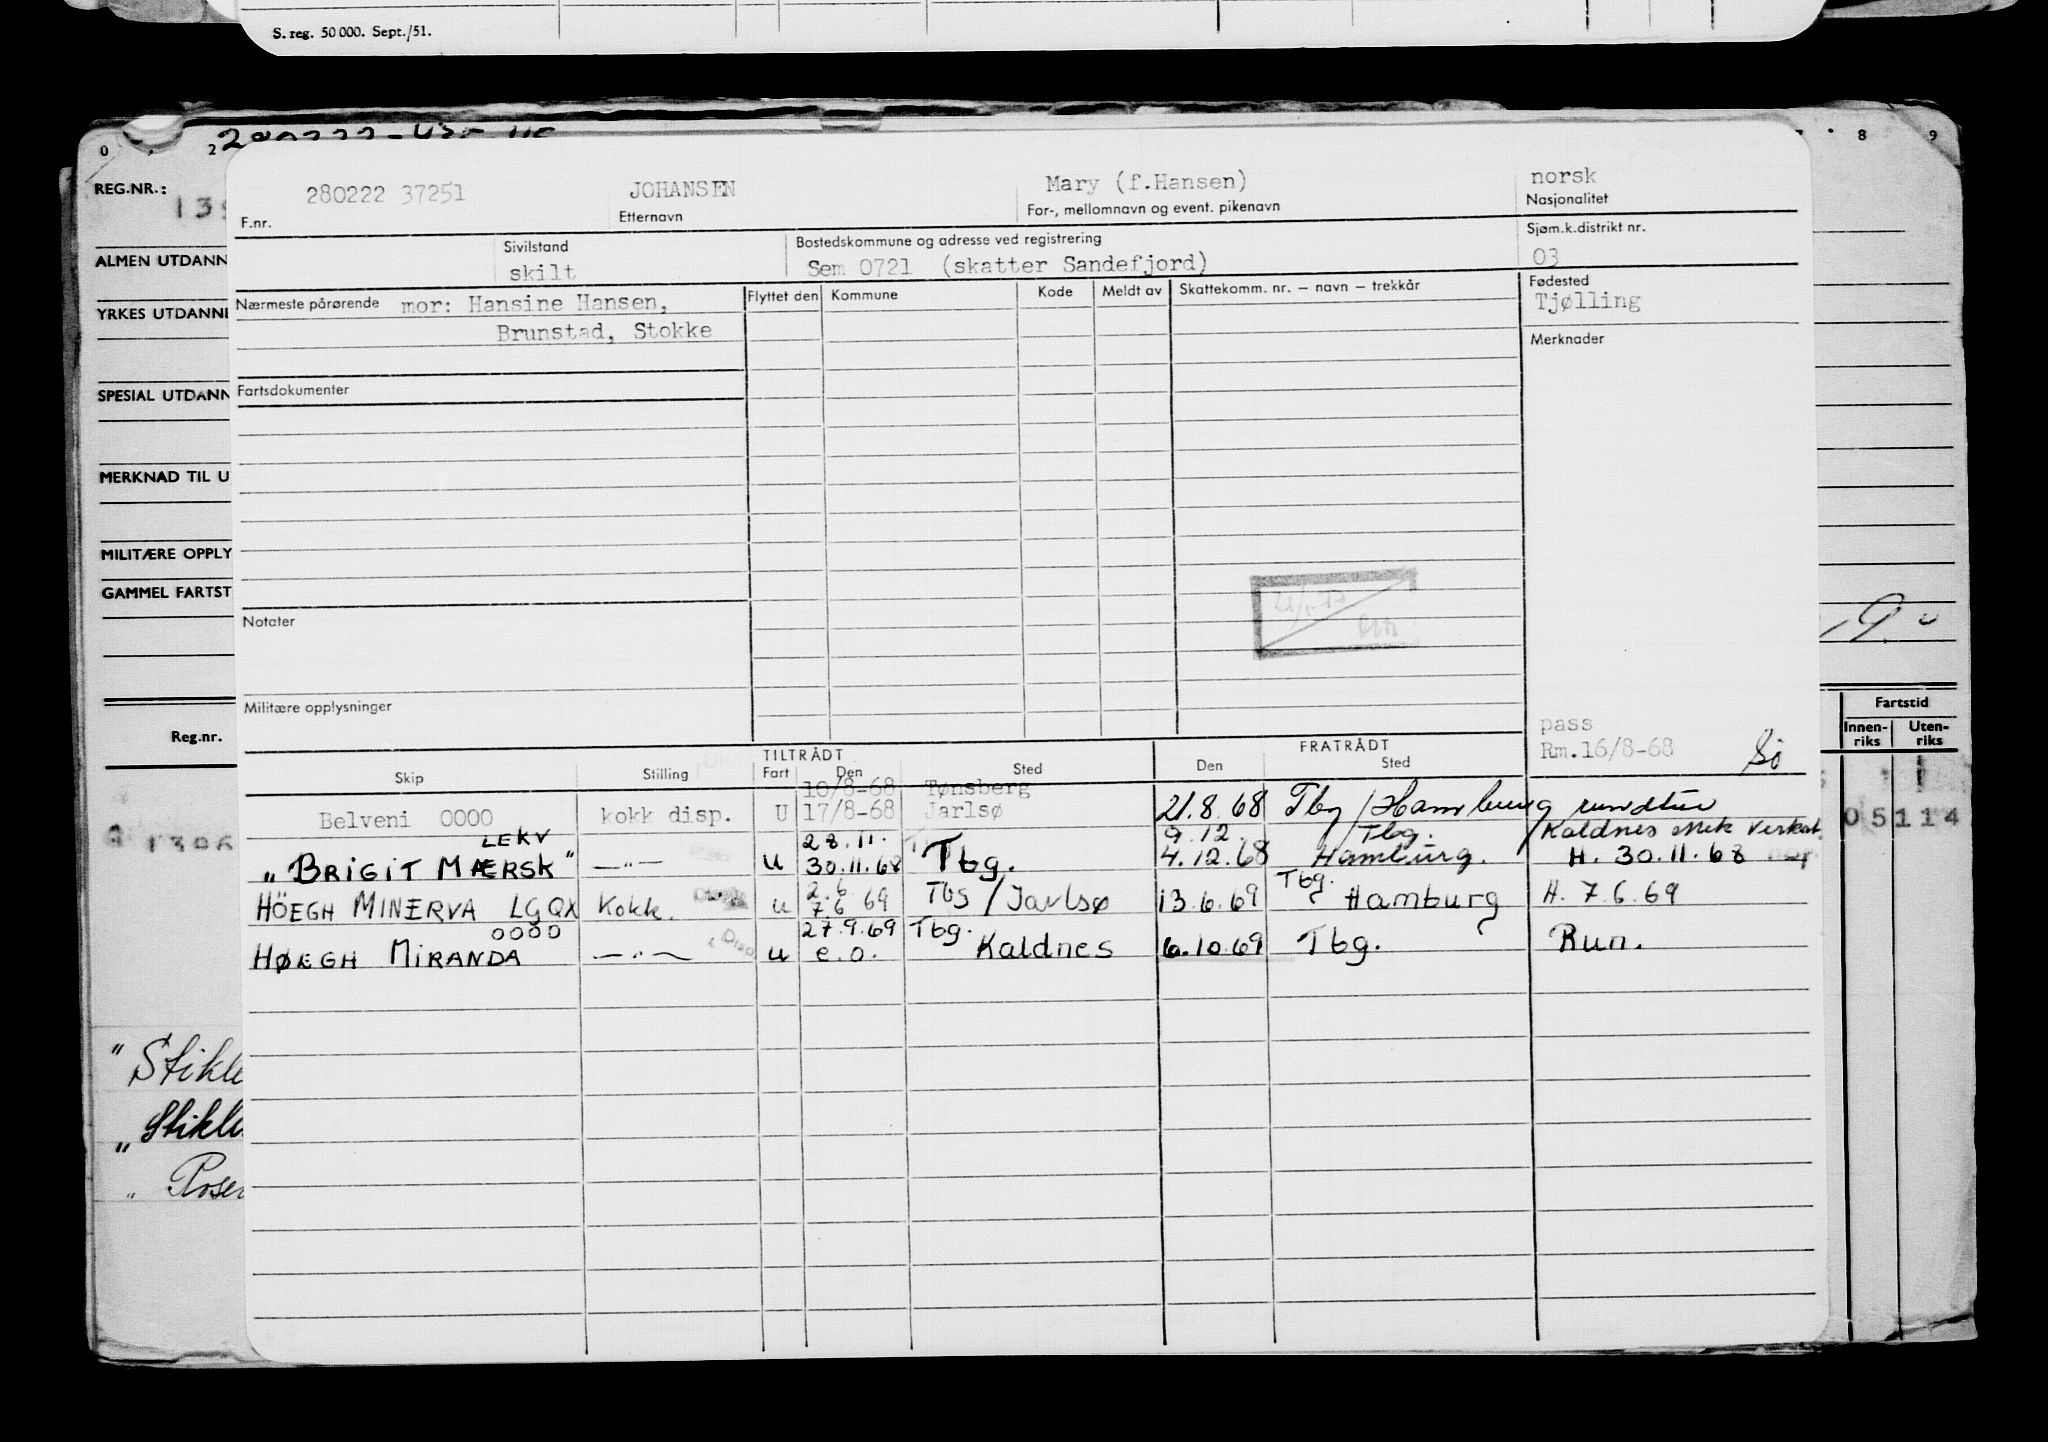 S. reg. 50 000. Sept./51.
0 2 8 9
REG.NR.:
ALMEN UTDANN
YRKES UTDANNE
SPESIAL UTDANN
MERKNAD TIL U
MILITÆRE OPPLY
GAMMEL FARTST
Reg.nr.
Fartstid
Innen-riks Uten-riks
05114
1396
280222 37251 JOHANSEN Mary (f.Hansen) norsk
F.nr. Etternavn For-, mellomnavn og event. pikenavn Nasjonalitet
Sivilstand Bostedskommune og adresse ved registrering Sjøm.k.distrikt nr.
skilt Sem 0721 (skatter Sandefjord) 03
Nærmeste pårørende mor: Hansine Hansen, Flyttet den Kommune Kode Meldt av Skattekomm. nr. – navn – trekkår Fødested
Brunstad, Stokke Tjølling
Merknader
Fartsdokumenter
Notater
Militære opplysninger
pass
Rm.16/8-68
TILTRÅDT FRATRÅDT
Skip Stilling Fart Den Sted Den Sted
10/8-68 Tønsberg
Belveni 0000 kokk disp. U 17/8-68 Jarlsø 21.8.68 Tbg/Hamburg rundtur
LEKV 28.11. 9.12. Tbg. Kaldnes Mek Verkst.
"BRIGIT MÆRSK" —"— u 30.11.68 Tbg. 4.12.68 Hamburg. H. 30.11.68
2.6. Tbg.
HÖEGH MINERVA LGQX Kokk. u 7.6 69 Tbg/Jarlsø 13.6.69 Hamburg H. 7.6.69
0000 27.9.69 Tbg.
HØEGH MIRANDA —"— u e.o. Kaldnes 6.10.69 Tbg. Run.
"Stikle
"Stikle
" Rose